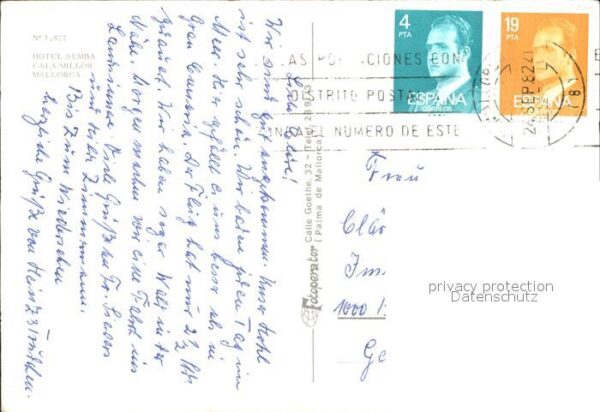 Nº 1.827
HOTEL SUMBA
CALA MILLOR
MALLORCA
Liebe Kläre!
Wir sind gut angekommen. Unser Hotel
ist sehr schön. Wir baden jeden Tag im
Meer. Hier gefällt es uns besser als in
Gran Canaria. Der Flug hat nur 2½ Std.
gedauert. Wir haben sogar Wald in der
Nähe. Morgen machen wir eine Fahrt ins
Landesinnere. Viele Grüße an Fr. Siebert
und Herr Zimmermann.
Bis zum Wiedersehen
herzliche Grüße von Heinz &
Fotoperator Calle Goethe, 32 - Telef.
(Palma de Mallorca)
4
PTA
ESPAÑA
CORREOS
19
PTA
ESPAÑA
DISTRITO POSTAL
EL NUMERO DE ESTE
SEP 82
Frau
Clär
Im
1000 1
Ge
privacy protection
Datenschutz